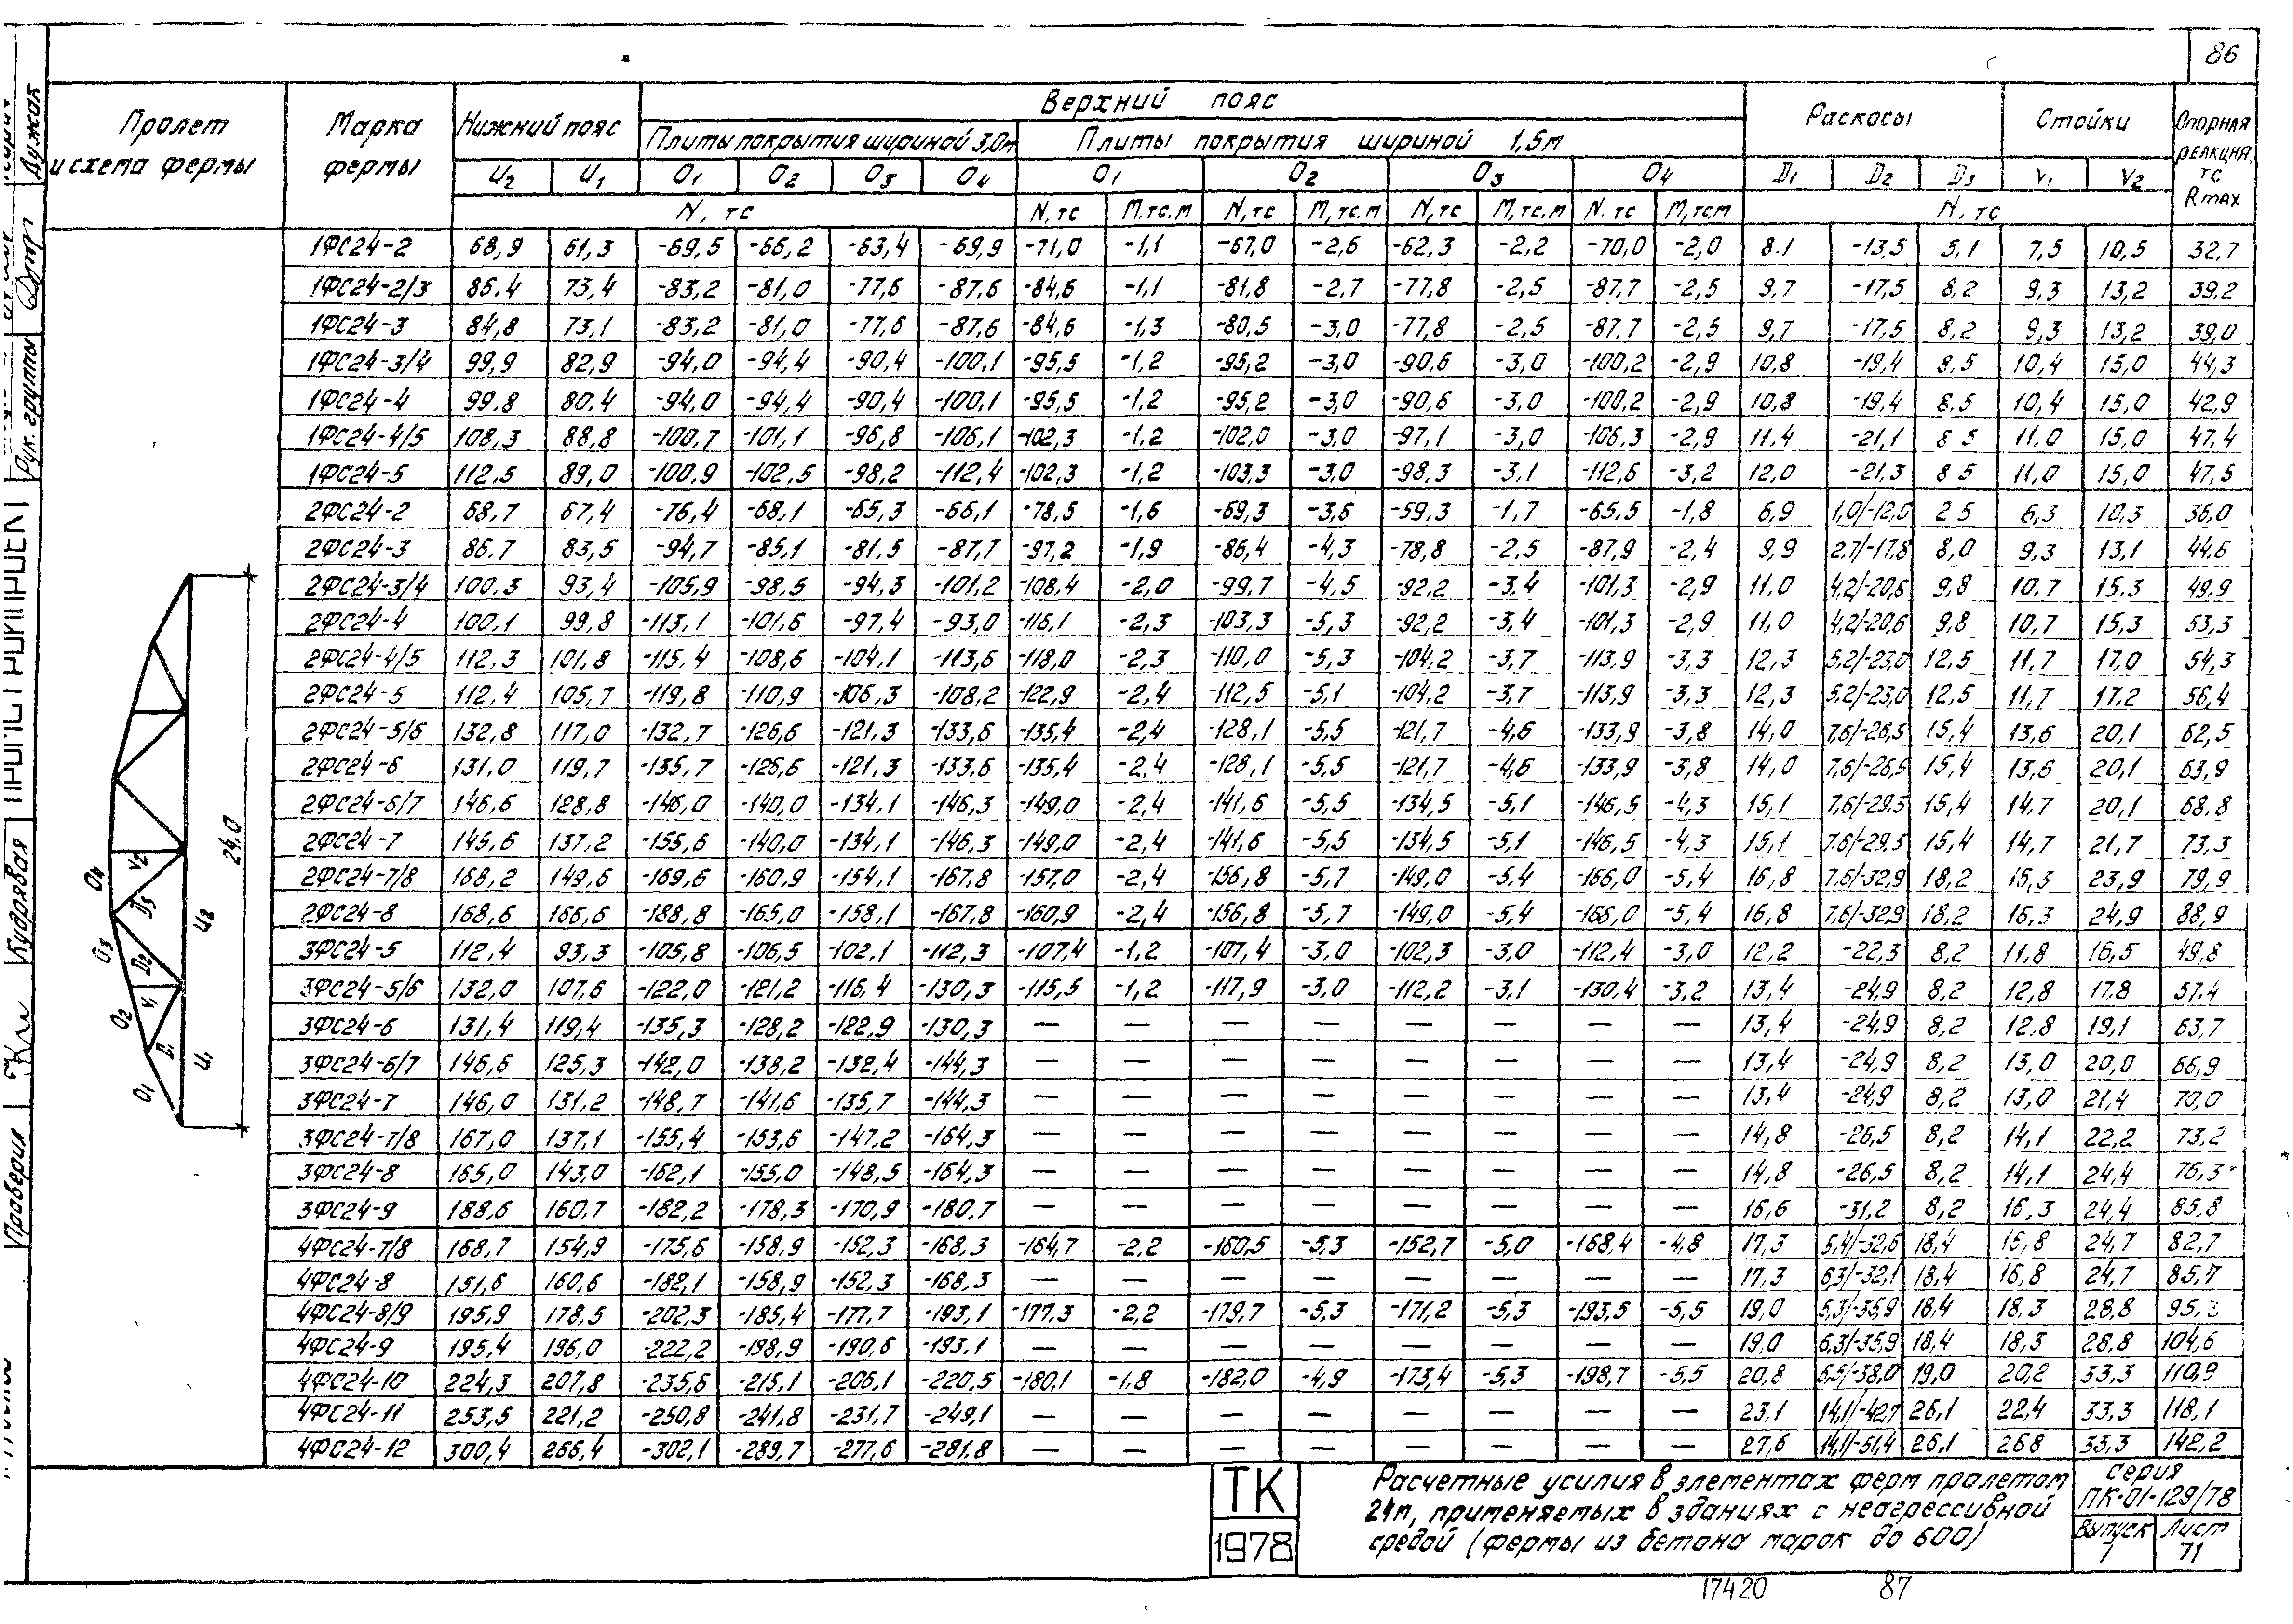 86
Пролет и схема фермы | Марка фермы | Нижний пояс | Верхний пояс | Раскосы | Стойки | Опорная реакция, тс Rmax
Плиты покрытия шириной 3,0м | Плиты покрытия шириной 1,5м
U₂ | U₁ | O₁ | O₂ | O₃ | O₄ | O₁ | O₂ | O₃ | O₄ | D₁ | D₂ | D₃ | V₁ | V₂
N, тс | N,тс | М,тс.м | N,тс | М,тс.м | N,тс | М,тс.м | N,тс | М,тс.м | N, тс
1ФС24-2 | 68,9 | 61,3 | -69,5 | -66,2 | -63,4 | -69,9 | -71,0 | -1,1 | -67,0 | -2,6 | -62,3 | -2,2 | -70,0 | -2,0 | 8.1 | -13,5 | 5,1 | 7,5 | 10,5 | 32,7
1ФС24-2/3 | 86.4 | 73,4 | -83,2 | -81,0 | -77,6 | -87,6 | -84,6 | -1,1 | -81,8 | -2,7 | -77,8 | -2,5 | -87,7 | -2,5 | 9,7 | -17,5 | 8,2 | 9,3 | 13,2 | 39,2
1ФС24-3 | 84,8 | 73,1 | -83,2 | -81,0 | -77,6 | -87,6 | -84,6 | -1,3 | -80,5 | -3,0 | -77,8 | -2,5 | -87,7 | -2,5 | 9,7 | -17,5 | 8,2 | 9,3 | 13,2 | 39,0
1ФС24-3/4 | 99,9 | 82,9 | -94,0 | -94,4 | -90,4 | -100,1 | -95,5 | -1,2 | -95,2 | -3,0 | -90,6 | -3,0 | -100,2 | -2,9 | 10,8 | -19,4 | 8,5 | 10,4 | 15,0 | 44,3
1ФС24-4 | 99,8 | 80,4 | -94,0 | -94,4 | -90,4 | -100,1 | -95,5 | -1,2 | -95,2 | -3,0 | -90,6 | -3,0 | -100,2 | -2,9 | 10,8 | -19,4 | 8,5 | 10,4 | 15,0 | 42,9
1ФС24-4/5 | 108,3 | 88,8 | -100,7 | -101,1 | -96,8 | -106,1 | -102,3 | -1,2 | -102,0 | -3,0 | -97,1 | -3,0 | -106,3 | -2,9 | 11,4 | -21,1 | 8 5 | 11,0 | 15,0 | 47,4
1ФС24-5 | 112,5 | 89,0 | -100,9 | -102,5 | -98,2 | -112,4 | -102,3 | -1,2 | -103,3 | -3,0 | -98,3 | -3,1 | -112,6 | -3,2 | 12,0 | -21,3 | 8 5 | 11,0 | 15,0 | 47,5
2ФС24-2 | 68,7 | 67,4 | -76,4 | -68,1 | -65,3 | -66,1 | -78,5 | -1,6 | -69,3 | -3,6 | -59,3 | -1,7 | -65,5 | -1,8 | 6,9 | 1,0/-12,0 | 2 5 | 6,3 | 10,3 | 36,0
2ФС24-3 | 86,7 | 83,5 | -94,7 | -85,1 | -81,5 | -87,7 | -97,2 | -1,9 | -86,4 | -4,3 | -78,8 | -2,5 | -87,9 | -2,4 | 9,9 | 2,7/-17,8 | 8,0 | 9,3 | 13,1 | 44,6
2ФС24-3/4 | 100,3 | 93,4 | -105,9 | -98,5 | -94,3 | -101,2 | -108,4 | -2,0 | -99,7 | -4,5 | -92,2 | -3,4 | -101,3 | -2,9 | 11,0 | 4,2/-20,6 | 9,8 | 10,7 | 15,3 | 49,9
2ФС24-4 | 100,1 | 99,8 | -113,1 | -101,6 | -97,4 | -93,0 | -116,1 | -2,3 | -103,3 | -5,3 | -92,2 | -3,4 | -101,3 | -2,9 | 11,0 | 4,2/-20,6 | 9,8 | 10,7 | 15,3 | 53,3
2ФС24-4/5 | 112,3 | 101,8 | -115,4 | -108,6 | -104,1 | -113,6 | -118,0 | -2,3 | -110,0 | -5,3 | -104,2 | -3,7 | -113,9 | -3,3 | 12,3 | 5,2/-23,0 | 12,5 | 11,7 | 17,0 | 54,3
2ФС24-5 | 112,4 | 105,7 | -119,8 | -110,9 | -106,3 | -108,2 | -122,9 | -2,4 | -112,5 | -5,1 | -104,2 | -3,7 | -113,9 | -3,3 | 12,3 | 5,2/-23,0 | 12,5 | 11,7 | 17,2 | 56,4
2ФС24-5/6 | 132,8 | 117,0 | -132,7 | -126,6 | -121,3 | -133,6 | -135,4 | -2,4 | -128,1 | -5,5 | -121,7 | -4,6 | -133,9 | -3,8 | 14,0 | 7,6/-26,5 | 15,4 | 13,6 | 20,1 | 62,5
2ФС24-6 | 131,0 | 119,7 | -135,7 | -126,6 | -121,3 | -133,6 | -135,4 | -2,4 | -128,1 | -5,5 | -121,7 | -4,6 | -133,9 | -3,8 | 14,0 | 7,6/-26,5 | 15,4 | 13,6 | 20,1 | 63,9
2ФС24-6/7 | 146,6 | 128,8 | -146,0 | -140,0 | -134,1 | -146,3 | -149,0 | -2,4 | -141,6 | -5,5 | -134,5 | -5,1 | -146,5 | -4,3 | 15,1 | 7,6/-29,3 | 15,4 | 14,7 | 20,1 | 68,8
2ФС24-7 | 145,6 | 137,2 | -155,6 | -140,0 | -134,1 | -146,3 | -149,0 | -2,4 | -141,6 | -5,5 | -134,5 | -5,1 | -146,5 | -4,3 | 15,1 | 7,6/-29,3 | 15,4 | 14,7 | 21,7 | 73,3
2ФС24-7/8 | 168,2 | 149,6 | -169,6 | -160,9 | -154,1 | -167,8 | -157,0 | -2,4 | -156,8 | -5,7 | -149,0 | -5.4 | -166,0 | -5,4 | 16,8 | 7,6/-32,9 | 18,2 | 16,3 | 23,9 | 79,9
2ФС24-8 | 168,6 | 166,6 | -188,8 | -165,0 | -158,1 | -167,8 | -160,9 | -2,4 | -156,8 | -5,7 | -149,0 | -5,4 | -166,0 | -5,4 | 16,8 | 7,6/-32,9 | 18,2 | 16,3 | 24,9 | 88,9
3ФС24-5 | 112,4 | 93,3 | -105,8 | -106,5 | -102,1 | -112,3 | -107,4 | -1,2 | -107,4 | -3,0 | -102,3 | -3,0 | -112,4 | -3,0 | 12,2 | -22,3 | 8,2 | 11,8 | 16,5 | 49,8
3ФС24-5/6 | 132,0 | 107,6 | -122,0 | -121,2 | -116,4 | -130,3 | -115,5 | -1,2 | -117,9 | -3,0 | -112,2 | -3,1 | -130,4 | -3,2 | 13,4 | -24,9 | 8,2 | 12,8 | 17,8 | 57,4
3ФС24-6 | 131,4 | 119,4 | -135,3 | -128,2 | -122,9 | -130,3 | — | — | — | — | — | — | — | — | 13,4 | -24,9 | 8,2 | 12.8 | 19,1 | 63,7
3ФС24-6/7 | 146,6 | 125,3 | -142,0 | -138,2 | -132,4 | -144,3 | — | — | — | — | — | — | — | — | 13,4 | -24,9 | 8,2 | 13,0 | 20,0 | 66,9
3ФС24-7 | 146,0 | 131,2 | -148,7 | -141,6 | -135,7 | -144,3 | — | — | — | — | — | — | — | — | 13,4 | -24,9 | 8,2 | 13,0 | 21,4 | 70,0
3ФС24-7/8 | 167,0 | 137,1 | -155,4 | -153,6 | -147,2 | -164,3 | — | — | — | — | — | — | — | — | 14,8 | -26,5 | 8,2 | 14,1 | 22,2 | 73,2
3ФС24-8 | 165,0 | 143,0 | -162,1 | -155,0 | -148,5 | -164,3 | — | — | — | — | — | — | — | — | 14,8 | -26,5 | 8,2 | 14,1 | 24,4 | 76,3
3ФС24-9 | 188,6 | 160,7 | -182,2 | -178,3 | -170,9 | -180,7 | — | — | — | — | — | — | — | — | 16,6 | -31,2 | 8,2 | 16,3 | 24,4 | 85,8
4ФС24-7/8 | 168,7 | 154,9 | -175,6 | -158,9 | -152,3 | -168,3 | -164,7 | -2,2 | -160,5 | -5,3 | -152,7 | -5,0 | -168,4 | -4,8 | 17,3 | 5,4/-32,6 | 18,4 | 16,8 | 24,7 | 82,7
4ФС24-8 | 151,6 | 160,6 | -182,1 | -158,9 | -152,3 | -168,3 | — | — | — | — | — | — | — | — | 17,3 | 6,3/-32,1 | 18,4 | 16,8 | 24,7 | 85,7
4ФС24-8/9 | 195,9 | 178,5 | -202,3 | -185,4 | -177,7 | -193,1 | -177,3 | -2,2 | -179,7 | -5,3 | -171,2 | -5,3 | -193,5 | -5,5 | 19,0 | 5,3/-35,9 | 18,4 | 18,3 | 28,8 | 95,3
4ФС24-9 | 195,4 | 196,0 | -222,2 | -198,9 | -190,6 | -193,1 | — | — | — | — | — | — | — | — | 19,0 | 6,3/-35,9 | 18,4 | 18,3 | 28,8 | 104,6
4ФС24-10 | 224,3 | 207,8 | -235,6 | -215,1 | -206,1 | -220,5 | -180,1 | -1.8 | -182,0 | -4,9 | -173,4 | -5,3 | -198,7 | -5,5 | 20,8 | 6,5/-38,0 | 19,0 | 20,2 | 33,3 | 110,9
4ФС24-11 | 253,5 | 221,2 | -250,8 | -241,8 | -231,7 | -249,1 | — | — | — | — | — | — | — | — | 23,1 | 14,1/-42,7 | 26,1 | 22,4 | 33,3 | 118,1
4ФС24-12 | 300,4 | 266,4 | -302,1 | -289,7 | -277,6 | -281,8 | — | — | — | — | — | — | — | — | 27,6 | 14,1/-51,4 | 26,1 | 268 | 33,3 | 142,2
24,0
O₄ O₃ O₂ O₁
V₂ D₃ D₂ V₁ D₁
U₂ U₁
Дужак
Рук. группы
Кудрявая
Проверил
ТК
1978
Расчетные усилия в элементах ферм пролетом
24м, применяемых в зданиях с неагрессивной
средой (фермы из бетона марок до 600)
серия
ПК-01-129/78
Выпуск 1
Лист 71
17420 87